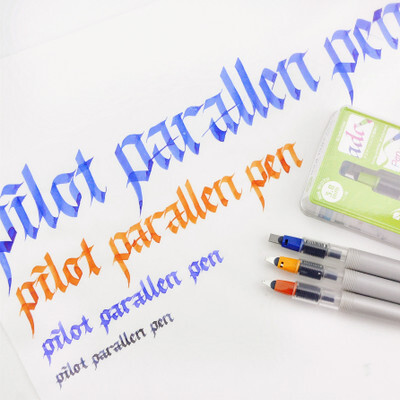 pilot parallen pen
pilot parallen pen
pilot parallen pen
pilot parallen pen